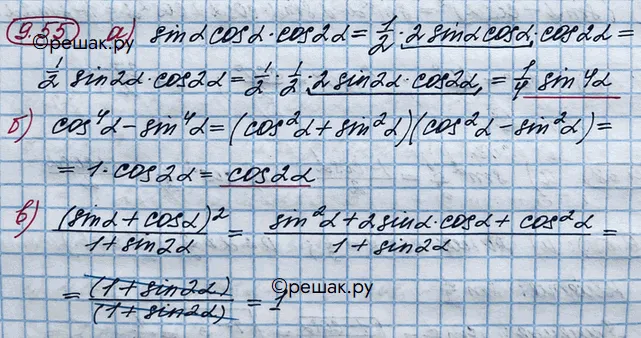 9.55 а) sinα cosα · cos2α = 1/2 · 2 sinα cosα · cos2α =
©решак.ру
1/2 sin2α · cos2α = 1/2 · 1/2 · 2 sin2α · cos2α = 1/4 sin4α
б) cos⁴α − sin⁴α = (cos²α + sin²α)(cos²α − sin²α) =
= 1 · cos2α = cos2α
в) (sinα + cosα)² / 1 + sin2α = sin²α + 2sinα · cosα + cos²α / 1 + sin2α =
= (1 + sin2α) / (1 + sin2α) = 1
©решак.ру